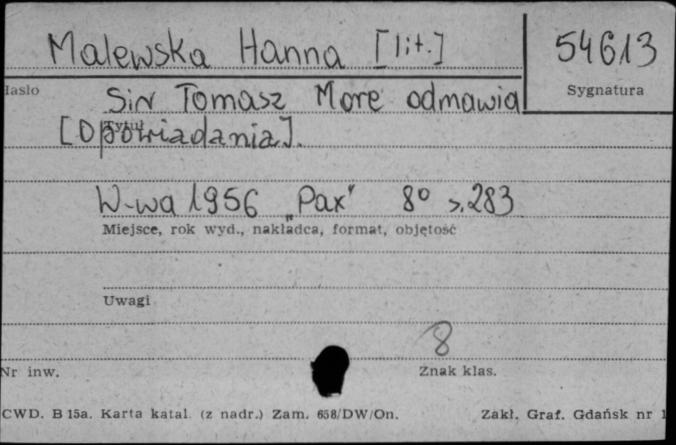 Malewska Hanna [lit.] 54613
Hasło Sygnatura
Sir Tomasz More odmawia
Tytuł
[Opowiadania].
W-wa 1956 „Pax" 8° s. 283
Miejsce, rok wyd., nakładca, format, objętość
Uwagi
8
Nr inw. Znak klas.
CWD. B 15a. Karta katal. (z nadr.) Zam. 658/DW/On. Zakł. Graf. Gdańsk nr 1